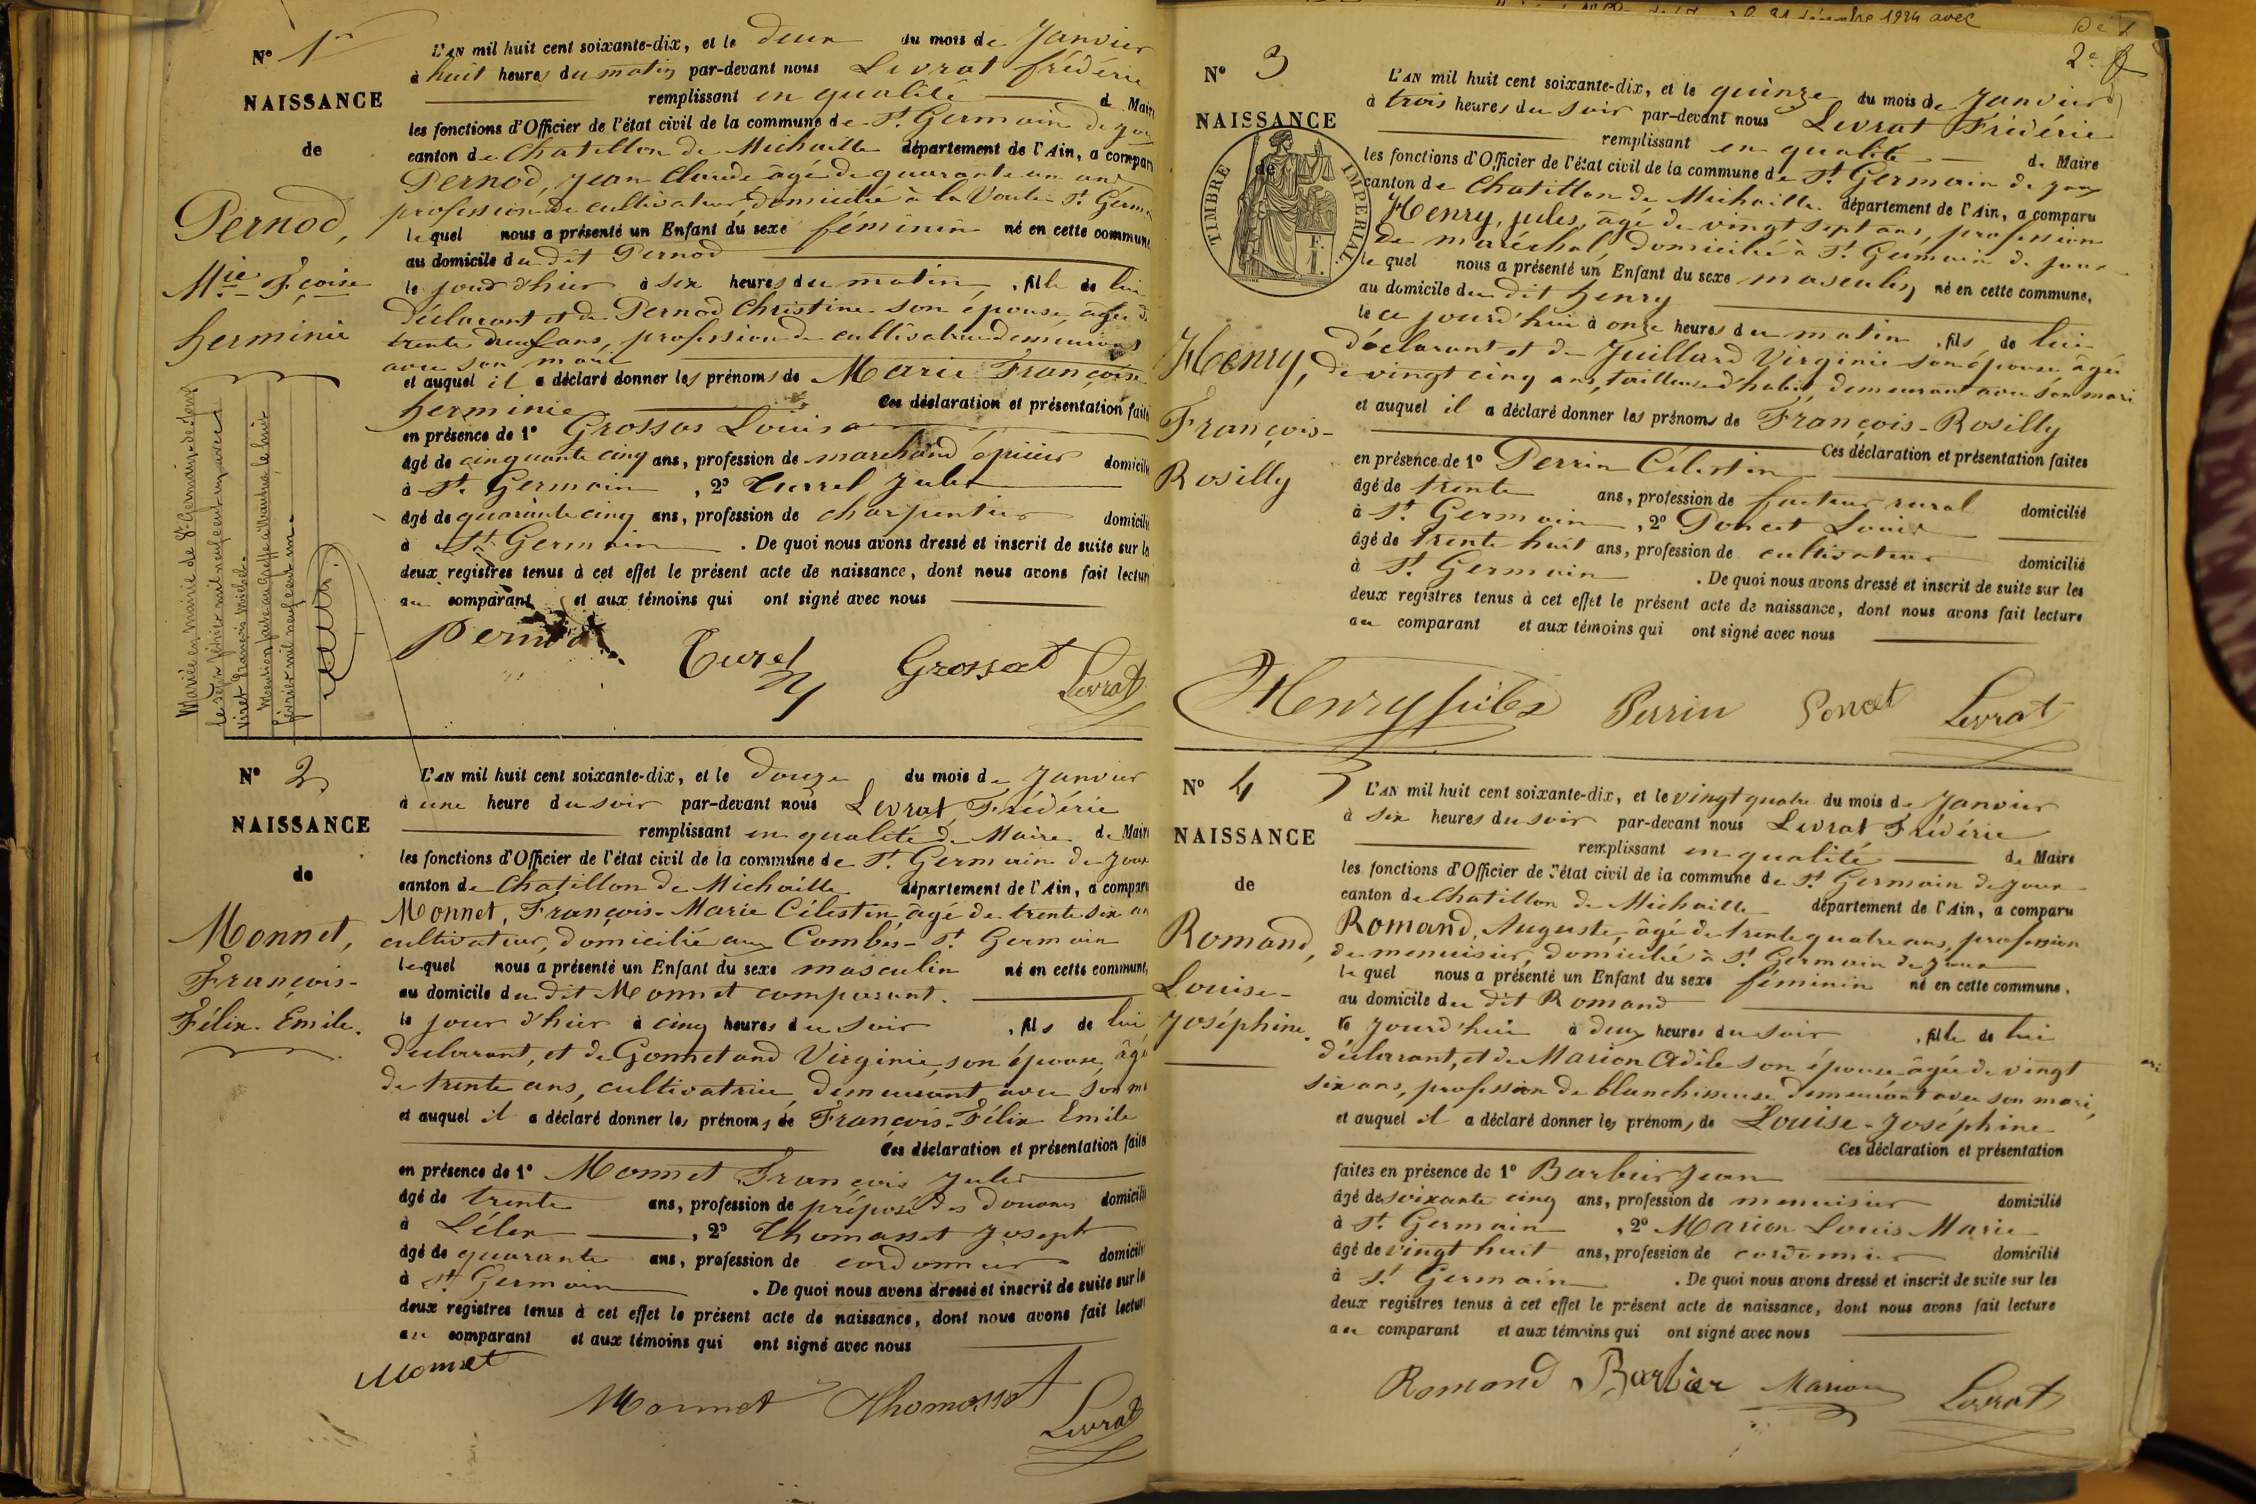 N° 1er
NAISSANCE
de
Pernod,
Mie Fçoise
herminie
Mariée en mairie de St Germain-de-Joux
le sept février mil neuf cent vingt avec
Viret François Michel
Mention faite au Greffe à Nantua, le huit
février mil neuf cent
L'AN mil huit cent soixante-dix, et le deux du mois de Janvier
à huit heures du matin par-devant nous Levrat frédéric
remplissant en qualité d Maire
les fonctions d'Officier de l'état civil de la commune de St Germain de joux
canton de Chatillon de Michaille département de l'Ain, a comparu
Pernod, Jean Claude âgé de quarante un ans
profession de cultivateur, domicilié à la Voute St Germ
lequel nous a présenté un Enfant du sexe féminin né en cette commune
au domicile du dit Pernod
le jour d'hier à six heures du matin, fille de lui
déclarant et de Pernod Christine son épouse, âgée de
trente deux ans, profession de cultivatrice demeurant
avec son mari
et auquel il a déclaré donner les prénoms de Marie Françoise
herminie Ces déclaration et présentation faites
en présence de 1° Grossas Louis
âgé de cinquante cinq ans, profession de marchand épicier domicilié
à St Germain, 2° Turrel Jules
âgé de quarante cinq ans, profession de charpentier domicilié
à St Germain. De quoi nous avons dressé et inscrit de suite sur le
deux registres tenus à cet effet le présent acte de naissance, dont nous avons fait lecture
au comparant et aux témoins qui ont signé avec nous
Pernod Turel Grossat Levrat
N° 2
NAISSANCE
de
Monnet,
François-
Félix-Emile.
L'AN mil huit cent soixante-dix, et le douze du mois de Janvier
à une heure du soir par-devant nous Levrat, Frédéric
remplissant en qualité de Maire de Maire
les fonctions d'Officier de l'état civil de la commune de St Germain de Joux
canton de Chatillon de Michaille département de l'Ain, a comparu
Monnet, François-Marie Célestin âgé de trente six an
cultivateur, domicilié aux Combes-St Germain
lequel nous a présenté un Enfant du sexe masculin né en cette commune,
au domicile du dit Monnet comparant.
le jour d'hier à cinq heures du soir, fils de lui
déclarant, et de Gonnetand Virginie, son épouse, âgé
de trente ans, cultivatrice, demeurant avec son ma
et auquel il a déclaré donner les prénoms de François-Félix Emile
Ces déclaration et présentation faites
en présence de 1° Monnet François Jules
âgé de trente ans, profession de préposé des douanes domicilié
à Lélex, 2° Thomasset Joseph
âgé de quarante ans, profession de cordonnier domicilié
à St Germain. De quoi nous avons dressé et inscrit de suite sur le
deux registres tenus à cet effet le présent acte de naissance, dont nous avons fait lecture
au comparant et aux témoins qui ont signé avec nous
Monnet
Monnet Thomasset Levrat
décembre 1924 avec
2e
N° 3
NAISSANCE
de
TIMBRE IMPERIAL
Henry,
François-
Rosilly
L'AN mil huit cent soixante-dix, et le quinze du mois de Janvier
à trois heures du soir par-devant nous Levrat Frédéric
remplissant en qualité de Maire
les fonctions d'Officier de l'état civil de la commune de St Germain de joux
canton de Chatillon de Michaille département de l'Ain, a comparu
Henry, jules, âgé de vingt sept ans, profession
de maréchal, domicilié à St Germain de joux
lequel nous a présenté un Enfant du sexe masculin, né en cette commune,
au domicile du dit henry
le ce jourd'hui à onze heures du matin, fils de lui
déclarant et de Juillard Virginie son épouse âgée
de vingt cinq ans, tailleuse d'habits demeurant avec son mari
et auquel il a déclaré donner les prénoms de François-Rosilly
Ces déclaration et présentation faites
en présence de 1° Perrin Célestin
âgé de trente ans, profession de facteur rural domicilié
à St Germain, 2° Poncet Louis
âgé de trente huit ans, profession de cultivateur domicilié
à St Germain. De quoi nous avons dressé et inscrit de suite sur les
deux registres tenus à cet effet le présent acte de naissance, dont nous avons fait lecture
au comparant et aux témoins qui ont signé avec nous
Henry jules Perrin Poncet Levrat
N° 4
NAISSANCE
de
Romand,
Louise-
Joséphine.
L'AN mil huit cent soixante-dix, et le vingt quatre du mois de Janvier
à six heures du soir par-devant nous Levrat Frédéric
remplissant en qualité de Maire
les fonctions d'Officier de l'état civil de la commune de St Germain de joux
canton de Chatillon de Michaille département de l'Ain, a comparu
Romand, Auguste, âgé de trente quatre ans, profession
de menuisier, domicilié à St Germain de joux
lequel nous a présenté un Enfant du sexe féminin né en cette commune,
au domicile du dit Romand
ce jourd'hui à deux heures du soir, fille de lui
déclarant, et de Marion Adèle son épouse âgée de vingt
six ans, profession de blanchisseuse demeurant avec son mari,
et auquel il a déclaré donner les prénoms de Louise-Joséphine
Ces déclaration et présentation
faites en présence de 1° Barbier Jean
âgé de soixante cinq ans, profession de menuisier domicilié
à St Germain, 2° Marion Louis Marie
âgé de vingt huit ans, profession de cordonnier domicilié
à St Germain. De quoi nous avons dressé et inscrit de suite sur les
deux registres tenus à cet effet le présent acte de naissance, dont nous avons fait lecture
au comparant et aux témoins qui ont signé avec nous
Romand Barbier Marion Levrat